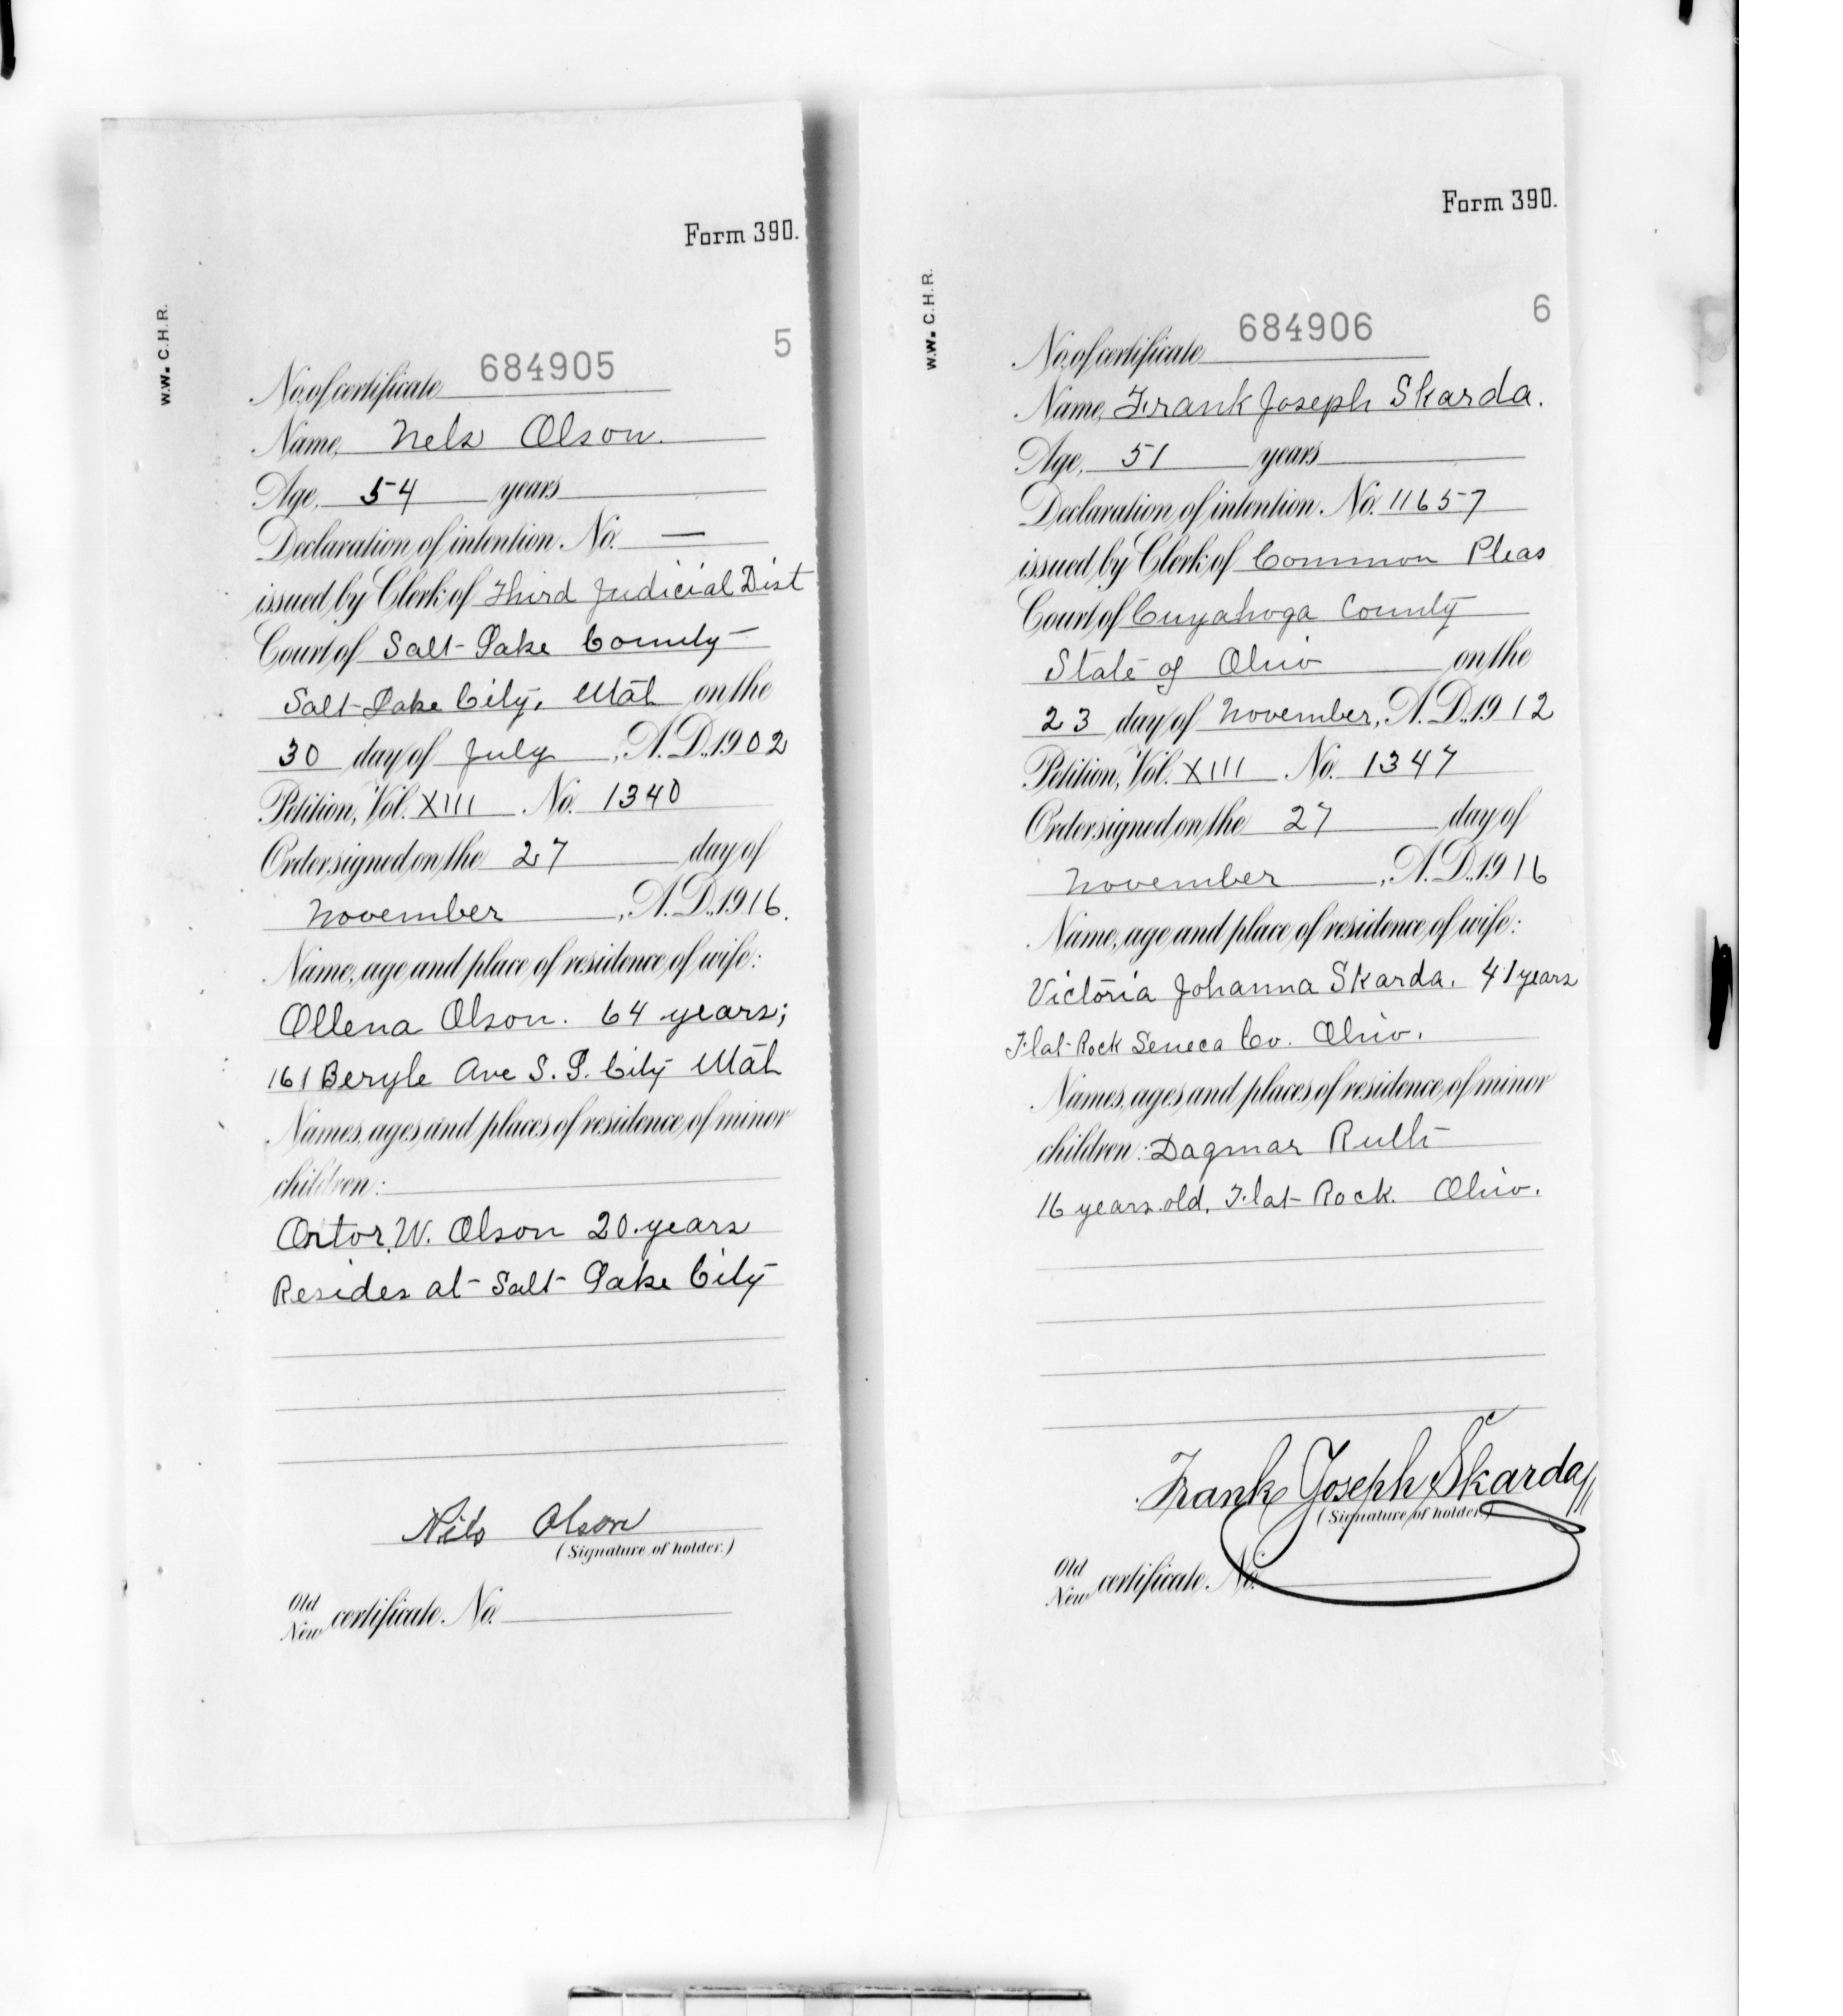 Form 390.
W.W. C.H.R.
5
No. of certificate 684905
Name, Nels Olson.
Age, 54 years
Declaration of intention No. —
issued by Clerk of Third Judicial Dist
Court of Salt Lake County
Salt Lake City, Utah on the
30 day of July, A.D. 1902
Petition, Vol. XIII No. 1340
Order signed on the 27 day of
November, A.D. 1916.
Name, age and place of residence of wife:
Ollena Olson. 64 years;
161 Beryle Ave S. L. City Utah
Names, ages and places of residence of minor
children:
W. Olson 20 years
Resides at Salt Lake City
Nils Olson
(Signature of holder.)
Old
New certificate No.
Form 390.
W.W. C.H.R.
6
No. of certificate 684906
Name, Frank Joseph Skarda.
Age, 51 years
Declaration of intention No. 11657
issued by Clerk of Common Pleas
Court of Cuyahoga County
State of Ohio on the
23 day of November, A.D. 1912
Petition, Vol. XIII No. 1347
Order signed on the 27 day of
November, A.D. 1916
Name, age and place of residence of wife:
Victoria Johanna Skarda. 41 years
Flat Rock Seneca Co. Ohio.
Names, ages and places of residence of minor
children: Dagmar Ruth
16 years old, Flat Rock. Ohio.
Frank Joseph Škarda
(Signature of holder)
Old
New certificate No.